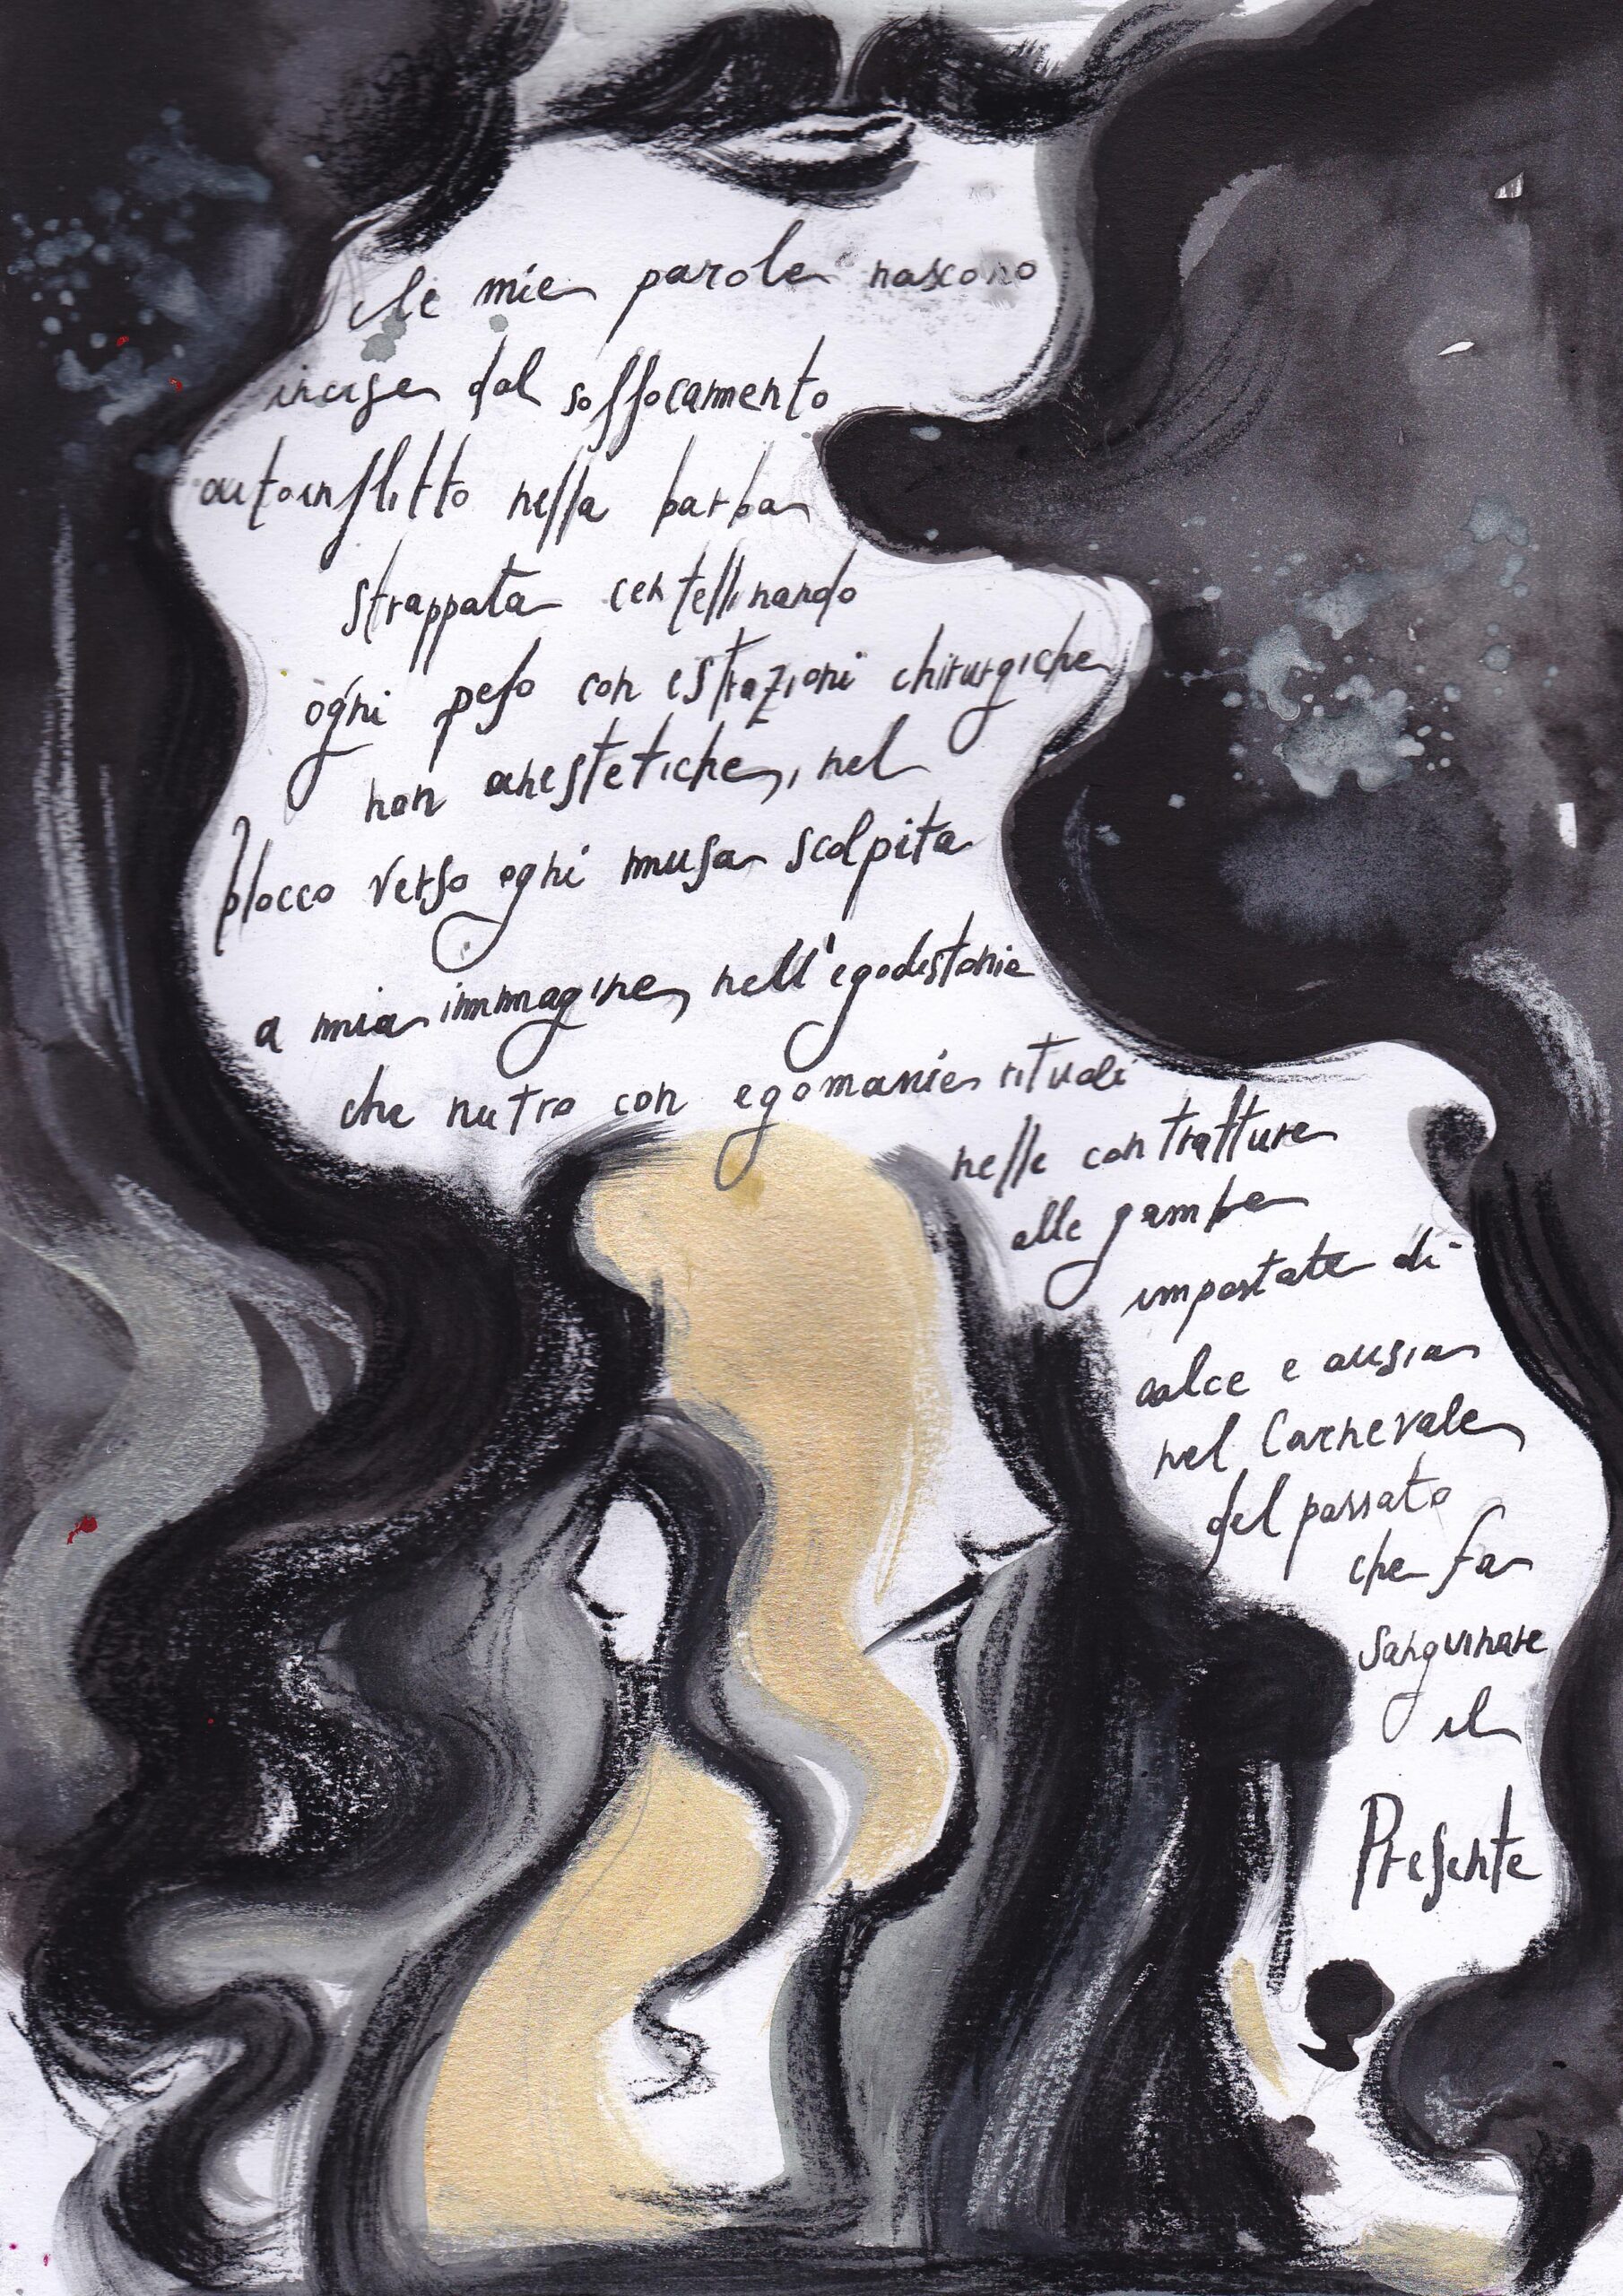 le mie parole nascono
incise dal soffocamento
autoinflitto nella barba
strappata centellinando
ogni peso con estrazioni chirurgiche
non anestetiche, nel
blocco verso ogni musa scolpita
a mia immagine, nell'egodistonia
che nutro con egomanie rituali
nelle contratture
alle gambe
impostate di
calce e ansia
nel Carnevale
del passato
che fa
sanguinare
il
Presente